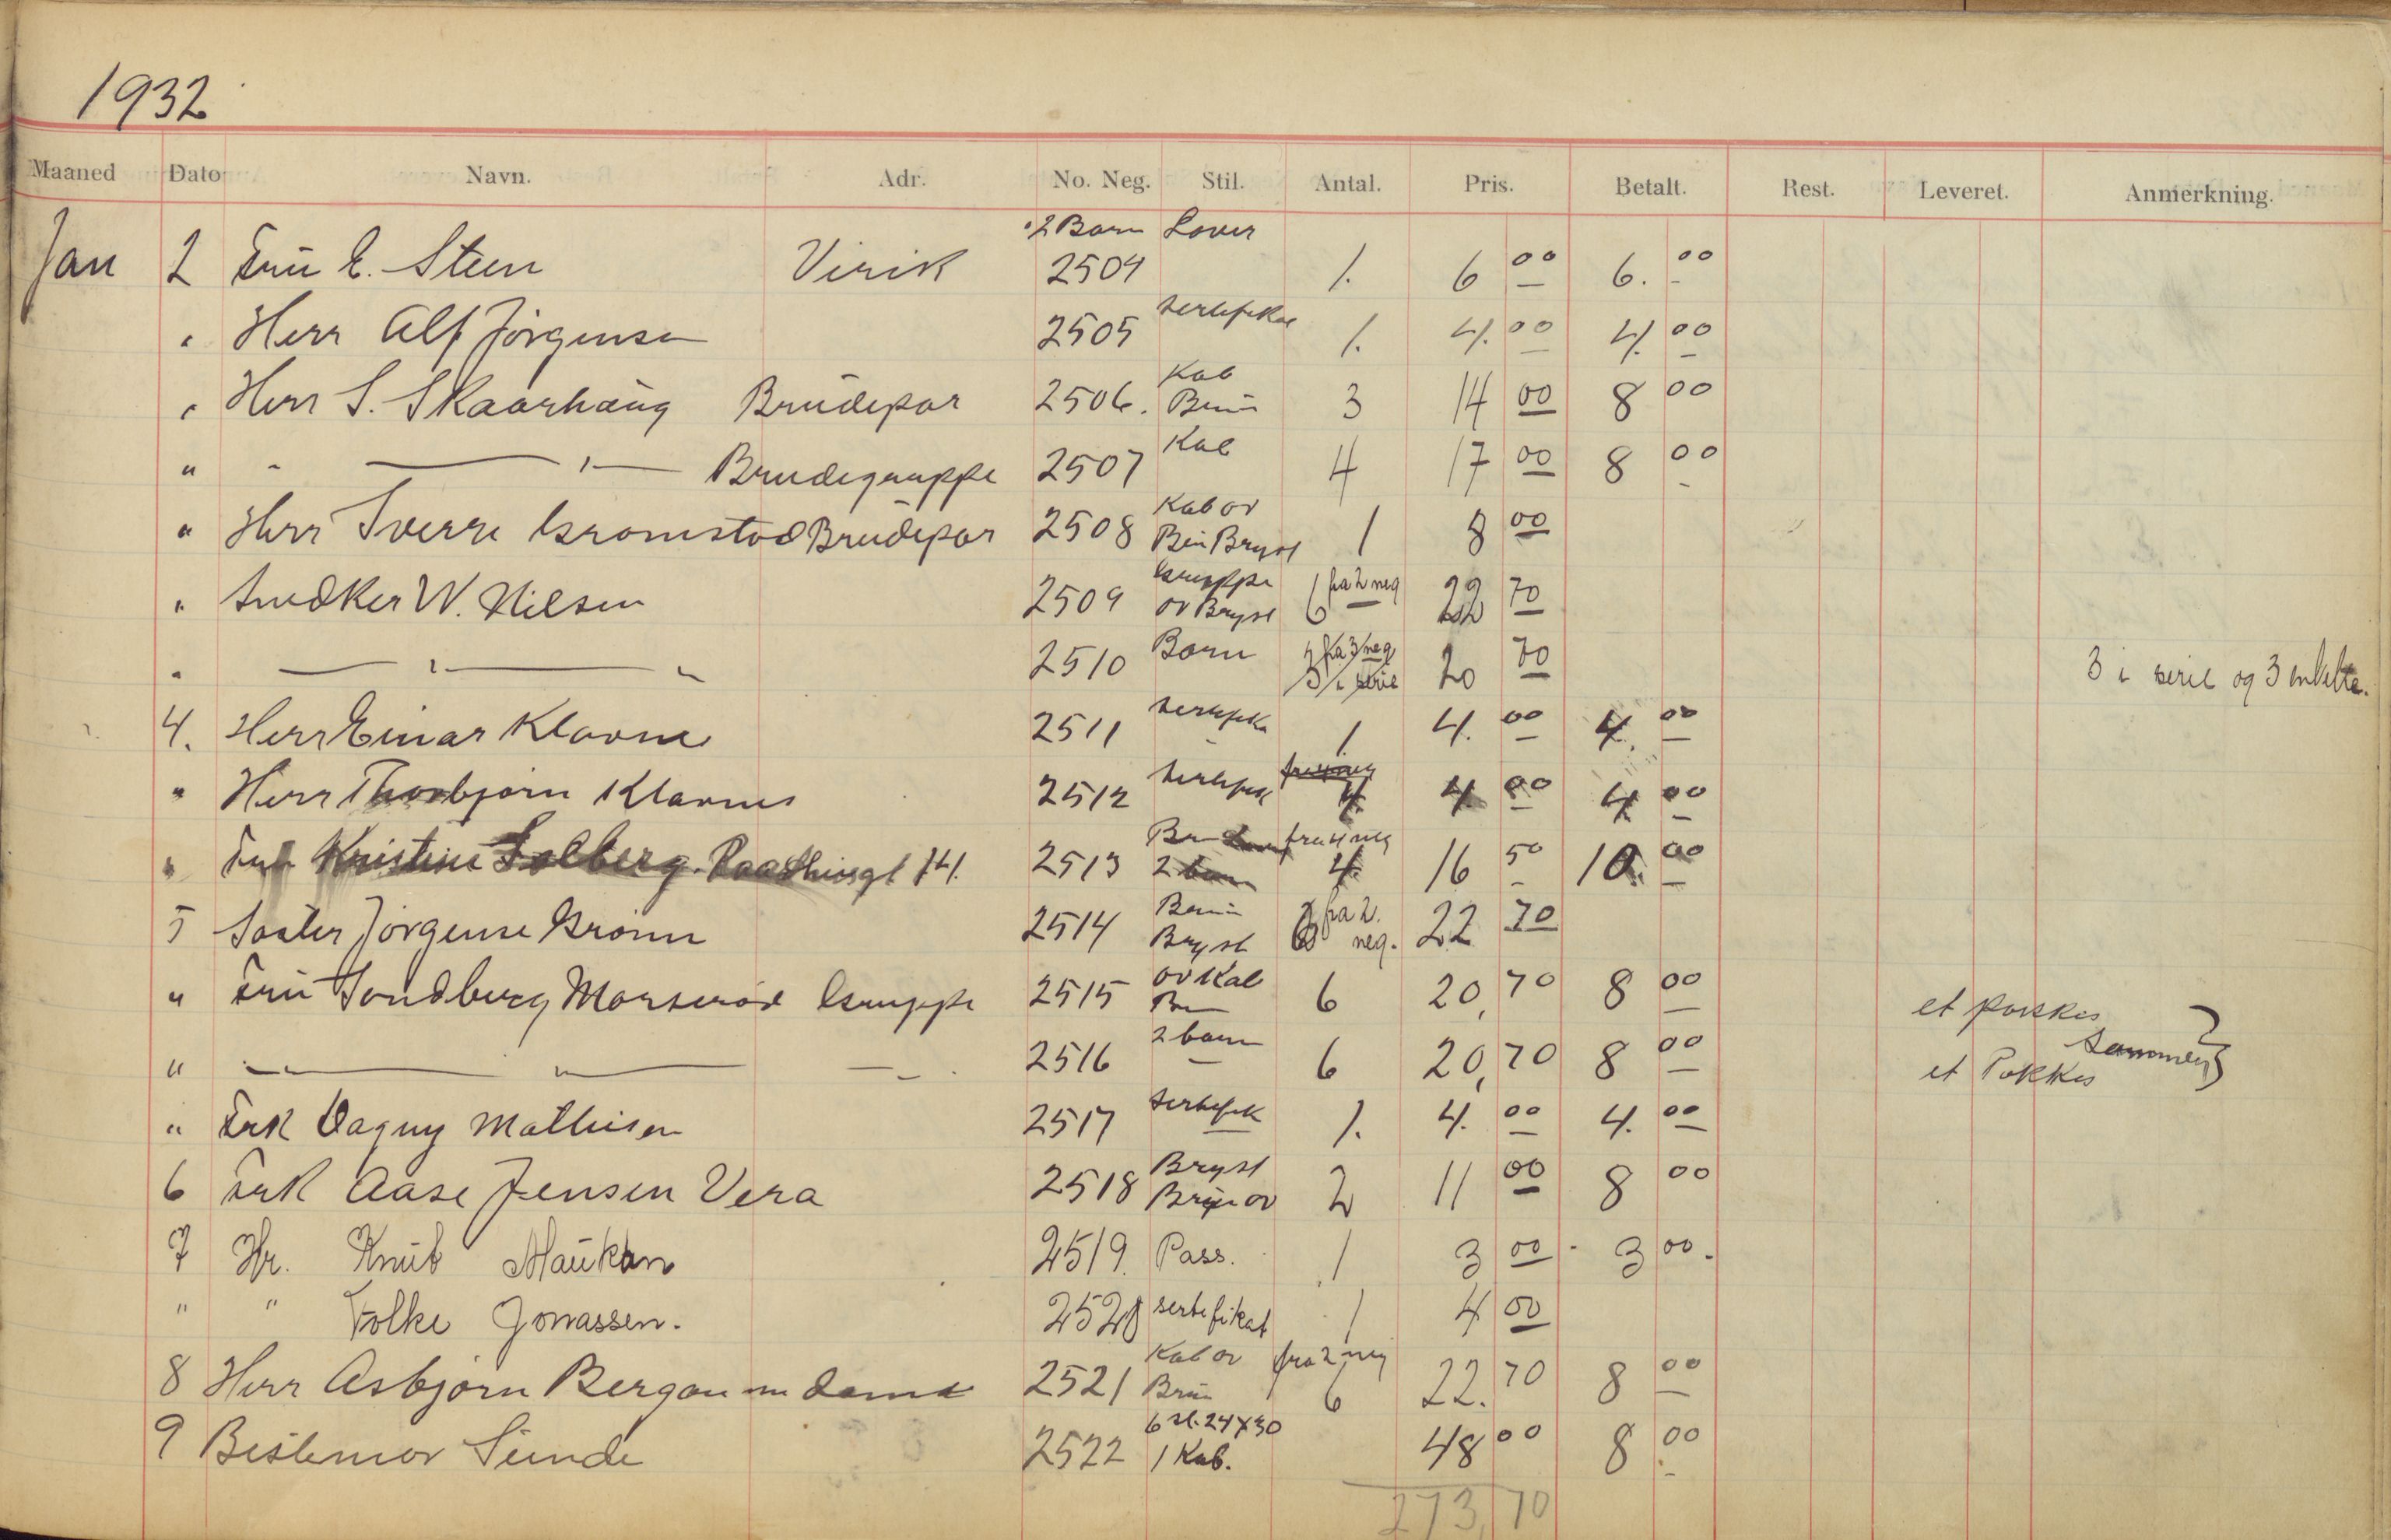 1932
Maaned Dato Navn. Adr. No. Neg. Stil. Antal. Pris. Betalt. Rest. Leveret. Anmerkning.
2 Barn Lover
Jan 2 Fru E. Steen Virik 2504 1. 6 00 6. 00
" Herr Alf Jörgensen 2505 1. 4. 00 4. 00
Kab
" Herr S. Skaarhaug Brudepar 2506. Brun 3 14 00 8 00
" " Brudegruppe 2507 Kab 4 17 00 8 00
Kab ov
" Herr Sverre Gromstad Brudepar 2508 Bryst 1 8 00
Gruppe fra 2 neg
" Snedker W. Nilsen 2509 ov Bryst 6 22 70
" " 2510 Barn fra 3 neg 20 70 3 i serie og 3 enkelte.
3 i serie
4. Herr Einar Klavnes 2511 1 4. 00 4. 00
" Herr Thorbjørn Klavnes 2512 4 00 4 00
fra 4 neg
" Kristine Solberg. Raadhusgt 14. 2513 2 barn 4. 16 50 10. 00
Brun fra 2.
5 Søster Jörgene Grönn 2514 Bryst 6 neg. 22 70
ov Kab
" Fru Sondberg Gruppe 2515 6 20, 70 8 00 et pakkes
2 barn sammen
" " 2516 6 20, 70 8 00 et Pakkes
" Frk Dagny Mathisen 2517 1. 4. 00 4. 00
Bryst
6 Frk Aase Jensen Vera 2518 Brun ov 2 11 00 8 00
7 Hr. Knut 2519. Pass. 1 3 00 3 00.
" " Folke Jonassen. 2520 sertefikat 1 4 00
Kab ov fra 2 neg
8 Herr Asbjørn Bergan m dame 2521 Brun 6 22. 70 8 00
6 st. 24x30
9 Bestemor Sunde 2522 1 Kab. 48 00 8 00
273,70